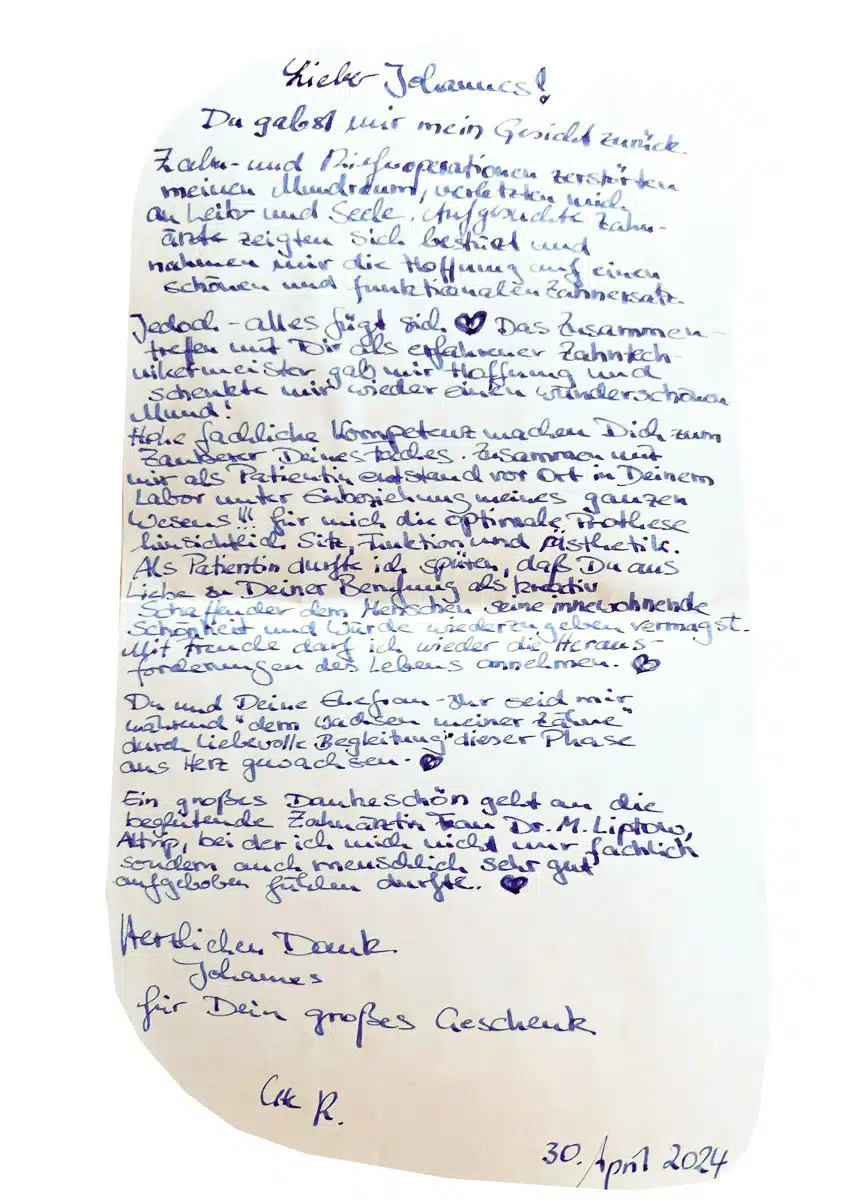 Lieber Johannes!
Du gabst mir mein Gesicht zurück
Zahn- und Kieferoperationen zerstörten
meinen Mundraum, verletzten mich
an Leib und Seele. Aufgesuchte Zahn-
ärzte zeigten sich bestürzt und
nahmen mir die Hoffnung auf einen
schönen und funktionalen Zahnersatz.
Jedoch - alles fügt sich ♥ Das Zusammen-
treffen mit Dir als erfahrener Zahntech-
nikermeister gab mir Hoffnung und
schenkte mir wieder einen wunderschönen
Mund!
Hohe fachliche Kompetenz machen Dich zum
Zauberer Deines Faches. Zusammen mit
mir als Patientin entstand vor Ort in Deinem
Labor unter Einbeziehung meines ganzen
Wesens!!! für mich die optimale Prothese
hinsichtlich Sitz, Funktion und Ästhetik.
Als Patientin durfte ich spüren, daß Du aus
Liebe zu Deiner Berufung als kreativ
Schaffender dem Menschen seine innewohnende
Schönheit und Würde wiederzugeben vermagst.
Mit Freude darf ich wieder die Heraus-
forderungen des Lebens annehmen. ♥
Du und Deine Ehefrau - Ihr seid mir
während "dem Wachsen meiner Zähne"
durch liebevolle Begleitung dieser Phase
ans Herz gewachsen. ♥
Ein großes Dankeschön geht an die
begleitende Zahnärztin Frau Dr. M. Liptow,
Altrip, bei der ich mich nicht nur fachlich
sondern auch menschlich sehr gut
aufgehoben fühlen durfte. ♥
Herzlichen Dank
Johannes
für Dein großes Geschenk
R.
30. April 2024